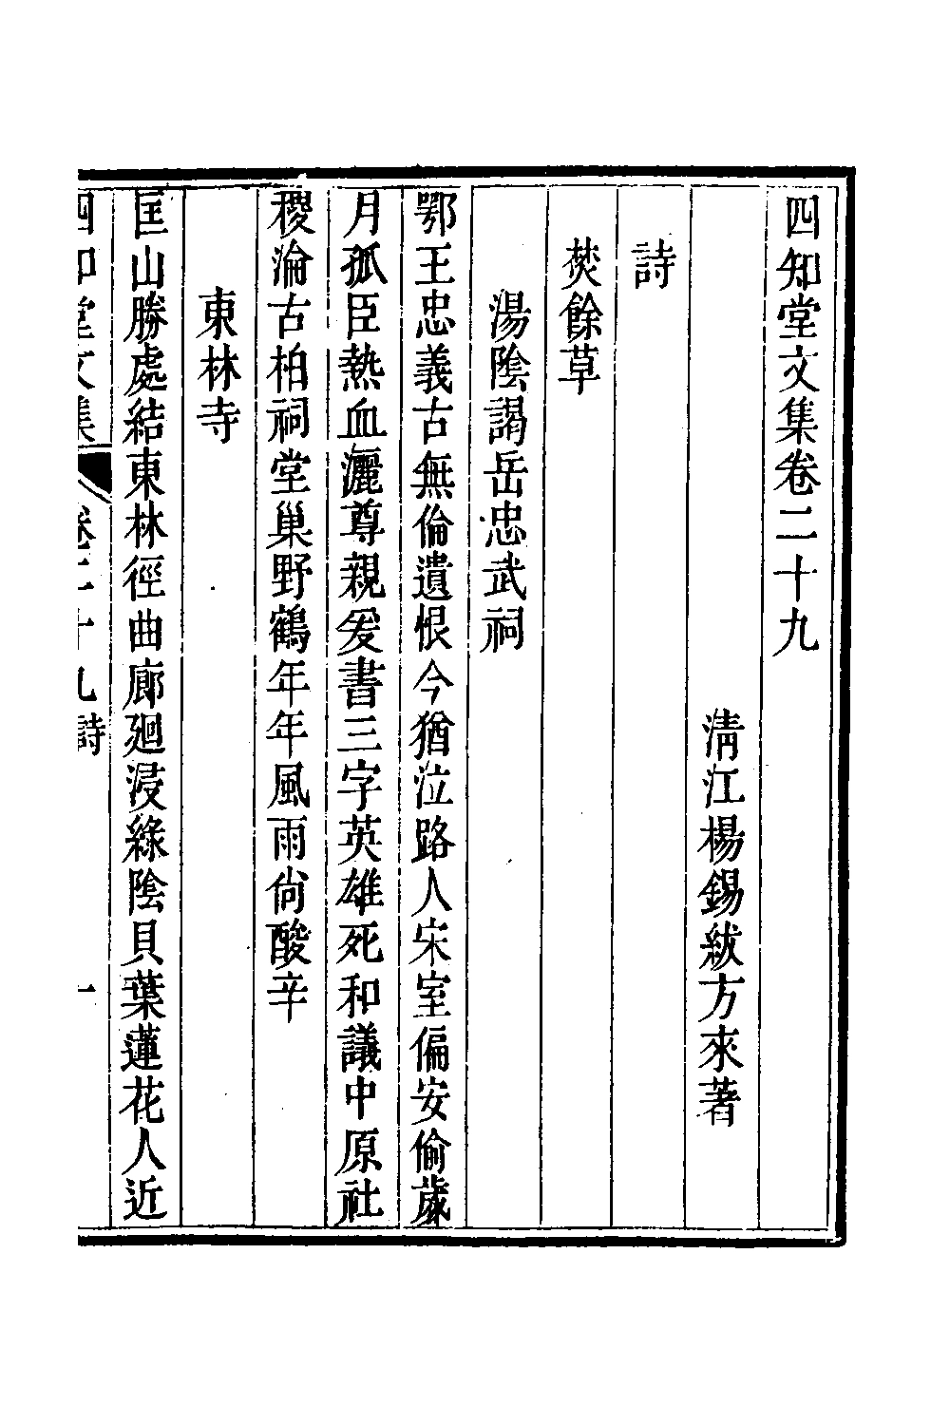 四知堂文集卷二十九
淸江楊錫紱方來著
詩
焚餘草
湯陰謁岳忠武祠
鄂王忠義古無倫遺恨今猶泣路人宋室偏安偷歲
月孤臣熱血灑尊親爰書三字英雄死和議中原社
稷淪古柏祠堂巢野鶴年年風雨尙酸辛
東林寺
匡山勝處結東林徑曲廊廻浸綠陰貝葉蓮花人近
四知堂文集 卷二十九 詩 一